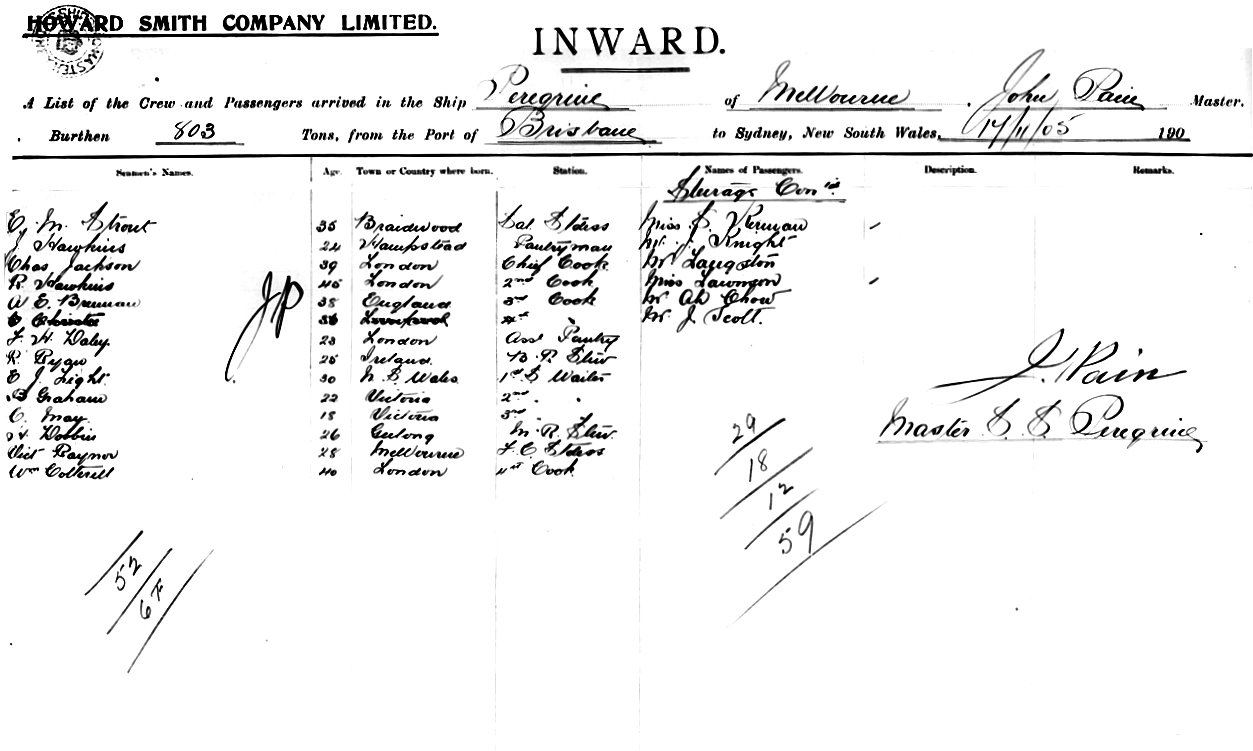 HOWARD SMITH COMPANY LIMITED.
INWARD.
A List of the Crew and Passengers arrived in the Ship Peregrine of Melbourne, John Pain Master.
Burthen 803 Tons, from the Port of Brisbane to Sydney, New South Wales, 17/11/05 190
Seamen's Names. Age. Town or Country where born. Station. Names of Passengers. Description. Remarks.
Sterage Con'td
E. M. Strout 35 Braidwood Sal. Stdess Miss S. Kernan "
J Hawkins 24 Hampstead Pantryman Mr J. Knight
Chas Jackson 39 London Chief Cook Mr Langston
R. Hawkins 45 London 2nd Cook Miss Lawnson "
W E. Brennan 38 England 3rd Cook Mr Ah Chow
4th Mr J Scott.
F. H. Daley 23 London Asst Pantry
R. Ryan 25 Ireland B. R. Stew
E J. Light 30 N. S. Wales 1st S Waiter
B Graham 22 Victoria 2nd " "
C. May 18 Victoria 3rd
H. Dobbin 26 Geelong M. R. Stew.
Vict Raynor 28 Melbourne F. C. Stdess
Wm Cotterill 40 London 4th Cook
JP
J. Pain
Master S. S. Peregrine
29
18
12
59
52